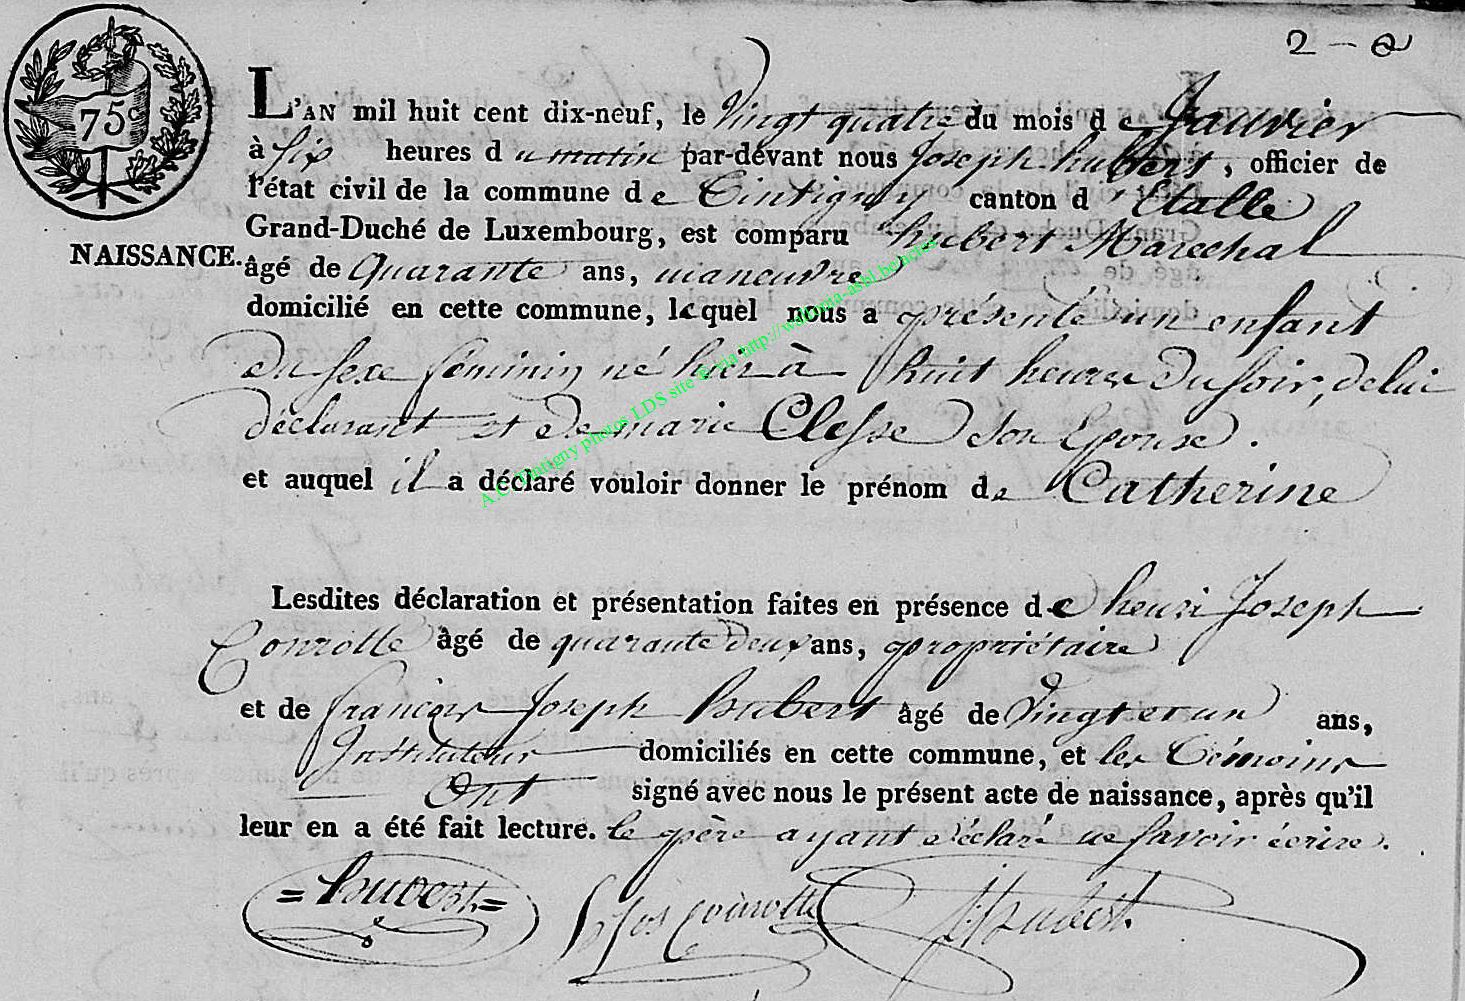 2 - a
75c
L'AN mil huit cent dix-neuf, le Vingt quatre du mois de Janvier
à six heures du matin par-devant nous Joseph hubert, officier de
l'état civil de la commune de Tintigny canton d'Etalle
Grand-Duché de Luxembourg, est comparu hubert Marechal
NAISSANCE.
âgé de Quarante ans, maneuvre
domicilié en cette commune, lequel nous a présenté un enfant
du sexe féminin né hier à huit heures du soir, de lui
déclarant et de marie Clesse son Epouse.
et auquel il a déclaré vouloir donner le prénom de Catherine
Lesdites déclaration et présentation faites en présence de henri Joseph
Conrotte âgé de quarante deux ans, propriétaire
et de françois Joseph hubert âgé de Vingt et un ans,
Instituteur domiciliés en cette commune, et les témoins
Ont signé avec nous le présent acte de naissance, après qu'il
leur en a été fait lecture. le père ayant déclaré ne savoir écrire.
=hubert=
h Jos Conrotte
J hubert.
A.C. Tintigny photos LDS site © via http://wallonia-asbl.be/actes